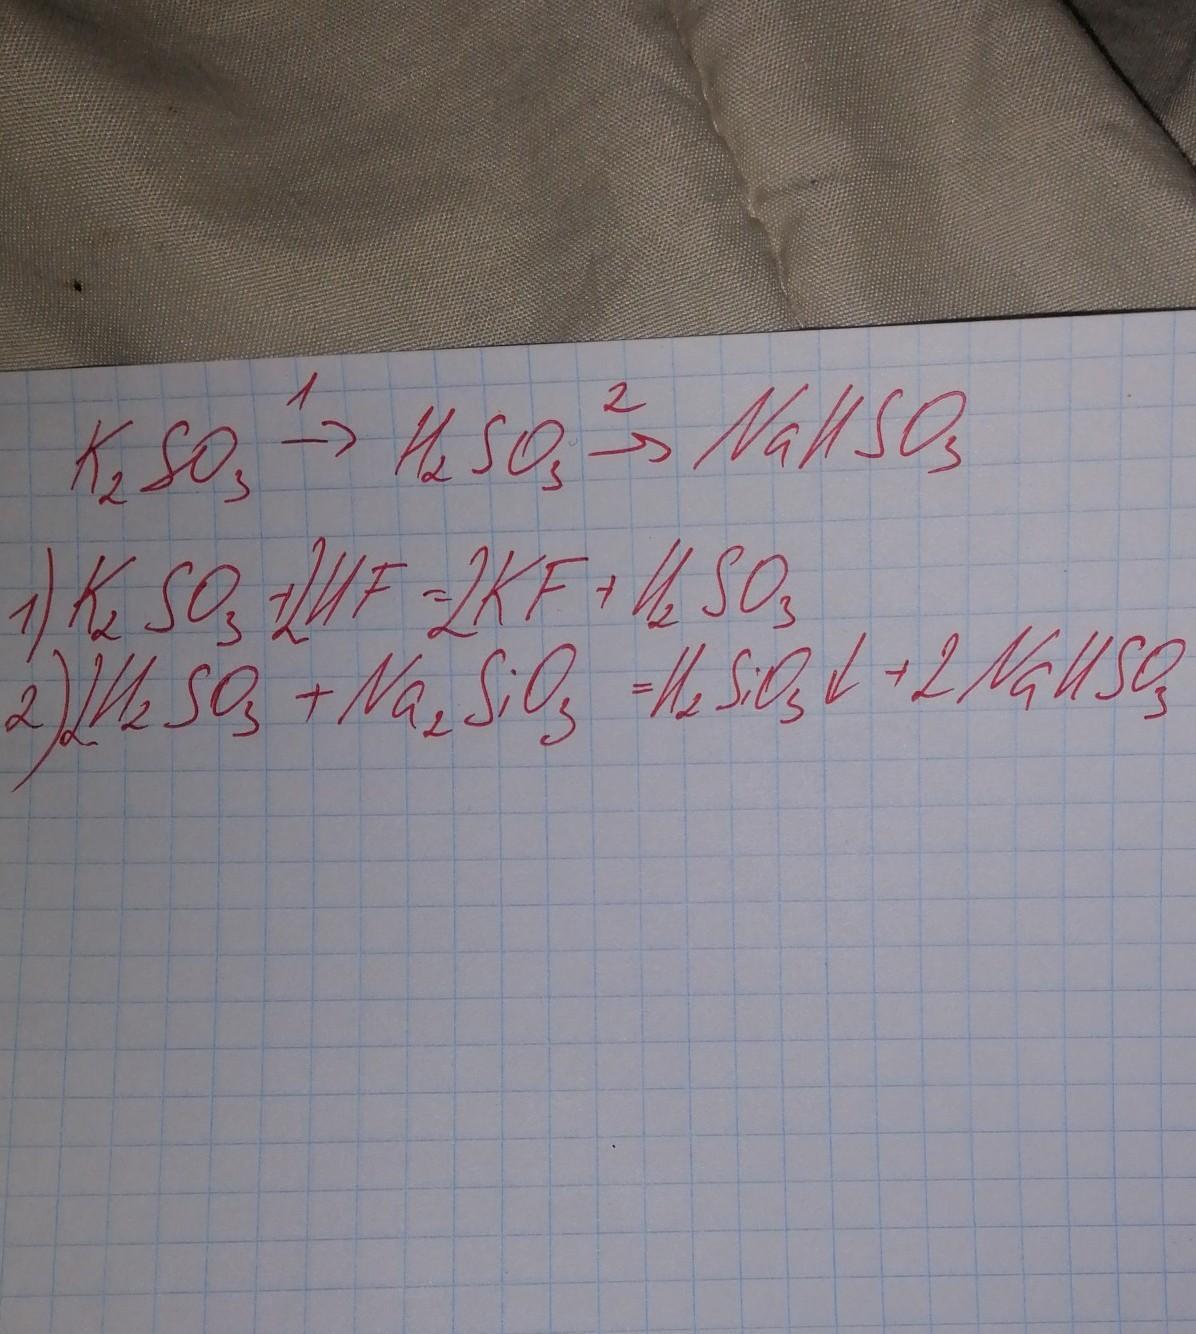 K₂SO₃ →¹ H₂SO₃ →² NaHSO₃
1) K₂SO₃ + 2HF = 2KF + H₂SO₃
2) 2H₂SO₃ + Na₂SiO₃ = H₂SiO₃↓ + 2NaHSO₃